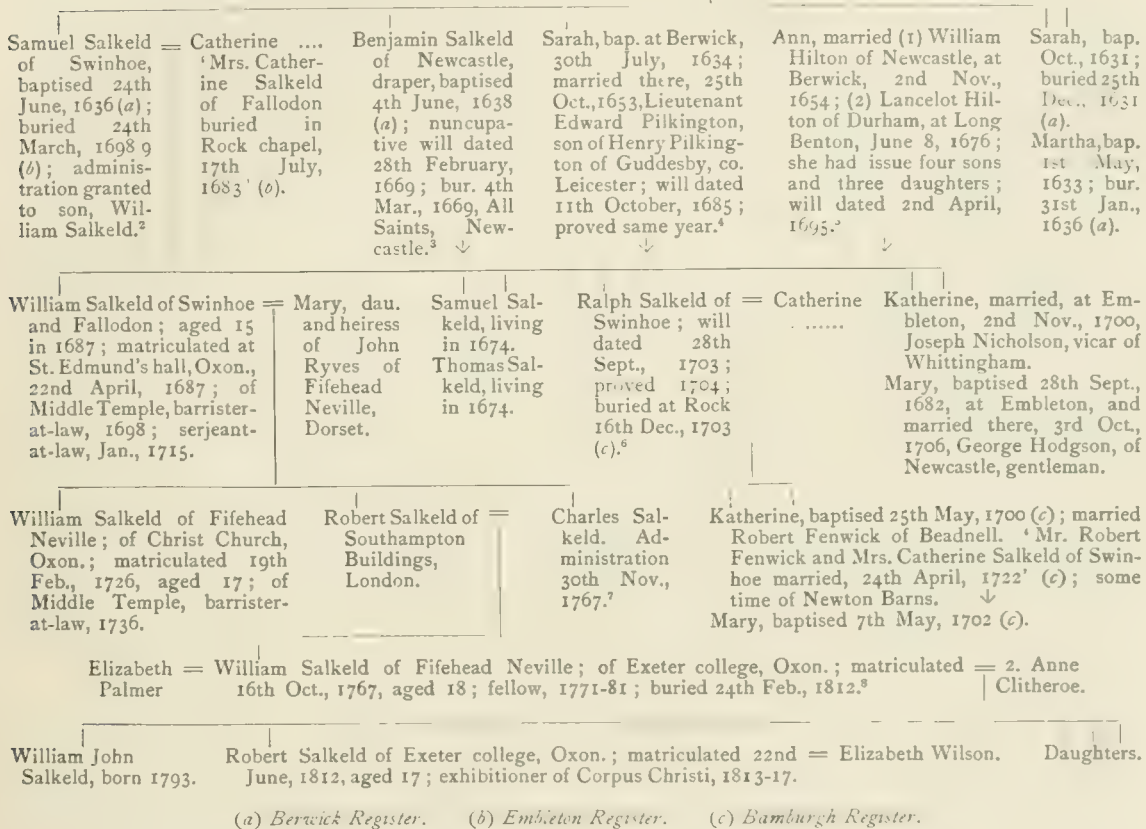 Samuel Salkeld
of Swinhoe,
baptised 24th
June, 1636 (a);
buried 24th
March, 1698 9
(b); adminis-
tration granted
to son, Wil-
liam Salkeld.²
=
Catherine ....
'Mrs. Cather-
ine Salkeld
of Fallodon
buried in
Rock chapel,
17th July,
1683' (b).
Benjamin Salkeld
of Newcastle,
draper, baptised
4th June, 1638
(a); nuncupa-
tive will dated
28th February,
1669; bur. 4th
Mar., 1669, All
Saints, New-
castle.³ ↓
Sarah, bap. at Berwick,
30th July, 1634;
married there, 25th
Oct., 1653, Lieutenant
Edward Pilkington,
son of Henry Pilking-
ton of Guddesby, co.
Leicester; will dated
11th October, 1685;
proved same year.⁴
↓
Ann, married (1) William
Hilton of Newcastle, at
Berwick, 2nd Nov.,
1654; (2) Lancelot Hil-
ton of Durham, at Long
Benton, June 8, 1676;
she had issue four sons
and three daughters;
will dated 2nd April,
1695.⁵
↓
Sarah, bap.
Oct., 1631;
buried 25th
Dec., 1631
(a).
Martha, bap.
1st May,
1633; bur.
31st Jan.,
1636 (a).
William Salkeld of Swinhoe
and Fallodon; aged 15
in 1687; matriculated at
St. Edmund's hall, Oxon.,
22nd April, 1687; of
Middle Temple, barrister-
at-law, 1698; serjeant-
at-law, Jan., 1715.
=
Mary, dau.
and heiress
of John
Ryves of
Fifehead
Neville,
Dorset.
Samuel Sal-
keld, living
in 1674.
Thomas Sal-
keld, living
in 1674.
Ralph Salkeld of
Swinhoe; will
dated 28th
Sept., 1703;
proved 1704;
buried at Rock
16th Dec., 1703
(c).⁶
=
Catherine
......
Katherine, married, at Em-
bleton, 2nd Nov., 1700,
Joseph Nicholson, vicar of
Whittingham.
Mary, baptised 28th Sept.,
1682, at Embleton, and
married there, 3rd Oct.,
1706, George Hodgson, of
Newcastle, gentleman.
William Salkeld of Fifehead
Neville; of Christ Church,
Oxon.; matriculated 19th
Feb., 1726, aged 17; of
Middle Temple, barrister-
at-law, 1736.
Robert Salkeld of =
Southampton
Buildings,
London.
Charles Sal-
keld. Ad-
ministration
30th Nov.,
1767.⁷
Katherine, baptised 25th May, 1700 (c); married
Robert Fenwick of Beadnell. 'Mr. Robert
Fenwick and Mrs. Catherine Salkeld of Swin-
hoe married, 24th April, 1722' (c); some
time of Newton Barns. ↓
Mary, baptised 7th May, 1702 (c).
Elizabeth = William Salkeld of Fifehead Neville; of Exeter college, Oxon.; matriculated = 2. Anne
Palmer 16th Oct., 1767, aged 18; fellow, 1771-81; buried 24th Feb., 1812.⁸ Clitheroe.
William John
Salkeld, born 1793.
Robert Salkeld of Exeter college, Oxon.; matriculated 22nd = Elizabeth Wilson.
June, 1812, aged 17; exhibitioner of Corpus Christi, 1813-17.
Daughters.
(a) Berwick Register. (b) Embleton Register. (c) Bamburgh Register.